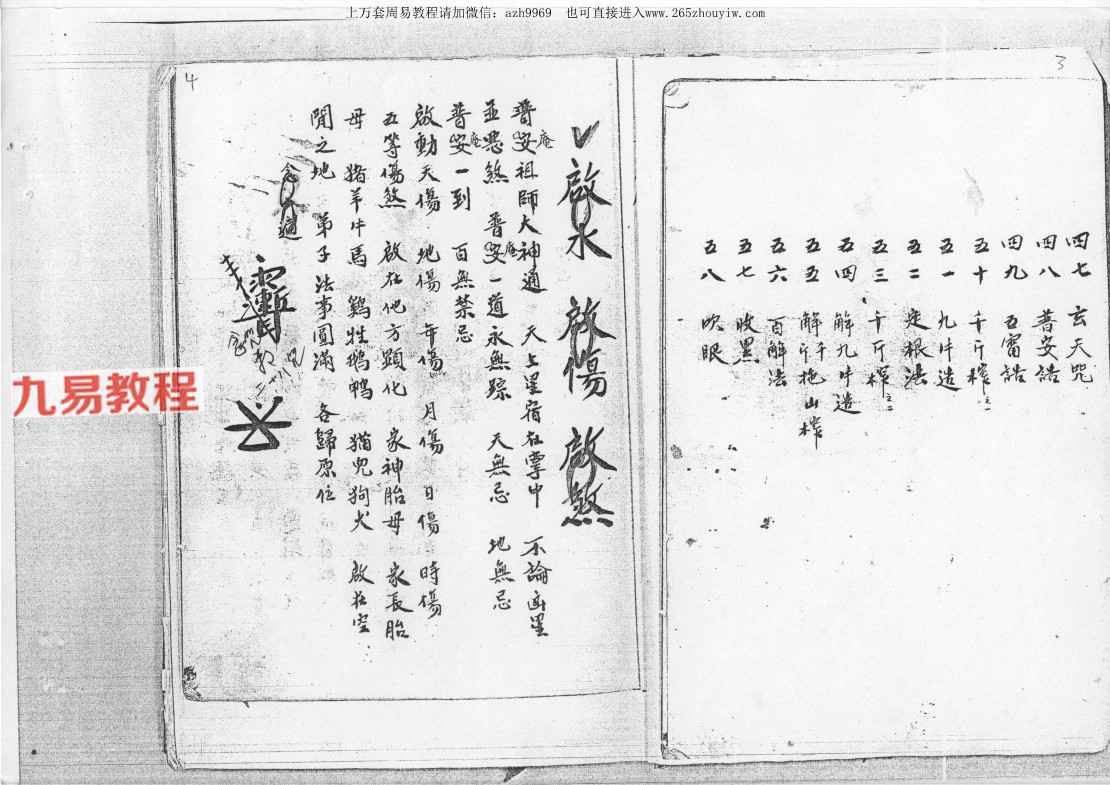 上万套周易教程请加微信：azh9969　也可直接进入www.265zhouyiw.com
3
四七　玄天咒
四八　普安誥
四九　五雷誥
五十　千斤榨之一
五一　九牛造
五二　定根法
五三　千斤榨之二
五四　解九牛造
五五　解千斤拖山榨
五六　百解法
五七　收黑
五八　吹眼
4
啟水　啟傷　啟煞
普安庵祖師大神通　天上星宿在掌中　不論凶星
並惡煞　普安庵一道永無踪　天無忌　地無忌
普安庵一到　百無禁忌
啟動天傷　地傷　年傷　月傷　日傷　時傷
五等傷煞　啟在他方顕化　家神胎母　家長胎
母　猪羊牛馬　鷄牲鵝鴨　猫兒狗犬　啟在空
閒之地　弟子法事圓滿　各歸原位
九易教程